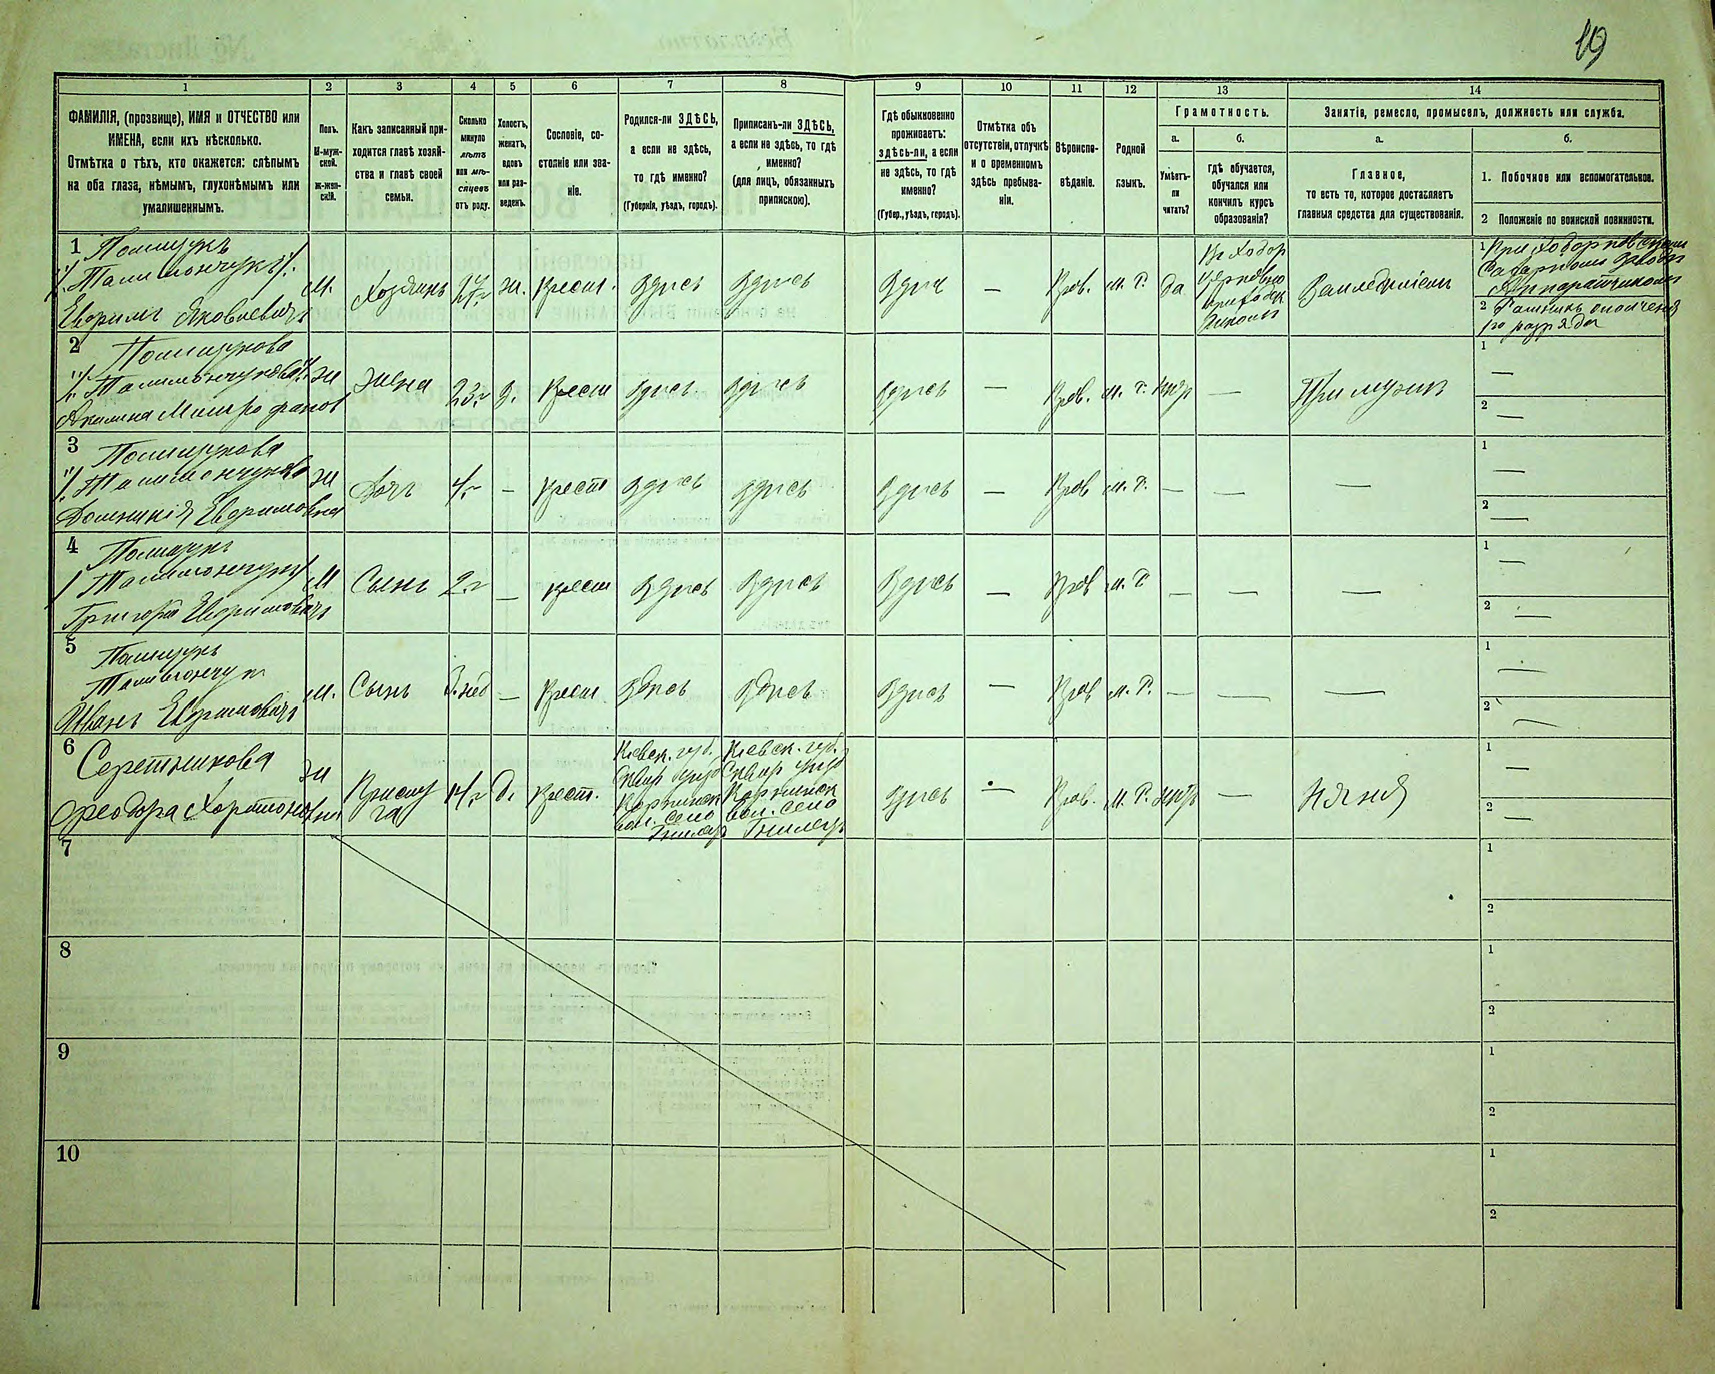 19
1
2
3
4
5
6
7
8
9
10
11
12
13
14
ФАМИЛІЯ, (прозвище), ИМЯ и ОТЧЕСТВО или
ИМЕНА, если ихъ нѣсколько.
Отмѣтка о тѣхъ, кто окажется: слѣпымъ
на оба глаза, нѣмымъ, глухонѣмымъ или
умалишеннымъ.
Полъ.
М-муж-
ской.
Ж-жен-
скій.
Какъ записанный при-
ходится главѣ хозяй-
ства и главѣ своей
семьи.
Сколько
минуло
лѣтъ
или мѣ-
сяцевъ
отъ роду.
Холостъ,
женатъ,
вдовъ
или раз-
веденъ.
Сословіе, со-
стояніе или зва-
ніе.
Родился-ли ЗДѢСЬ,
а если не здѣсь,
то гдѣ именно?
(Губернія, уѣздъ, городъ).
Приписанъ-ли ЗДѢСЬ,
а если не здѣсь, то гдѣ
именно?
(для лицъ, обязанныхъ
припискою).
Гдѣ обыкновенно
проживаетъ:
здѣсь-ли, а если
не здѣсь, то гдѣ
именно?
(Губер., уѣздъ, городъ).
Отмѣтка объ
отсутствіи, отлучкѣ
и о временномъ
здѣсь пребыва-
ніи.
Вѣроиспо-
вѣданіе.
Родной
языкъ.
Грамотность.
а.
Умѣетъ-
ли
читать?
б.
гдѣ обучается,
обучался или
кончилъ курсъ
образованія?
Занятіе, ремесло, промыселъ, должность или служба.
а.
Главное,
то есть то, которое доставляетъ
главныя средства для существованія.
б.
1. Побочное или вспомогательное.
2 Положеніе по воинской повинности.
1 Полищукъ
Талимончукъ
Ефримъ Яковлевичъ
м.
Хозяинъ
ж.
Крест.
Здѣсь
Здѣсь
Здѣсь
—
Прав.
М. Р.
да
Въ Ходор
церковно
приходск
школѣ
Земледѣліемъ
1 При Ходорковскомъ
Сахарномъ заводѣ
Аппаратчикомъ
2 Ратникъ ополченія
1го разряда
2 Полищукова
Талимончукова
Акилина Митрофанов
ж
Жена
23 г
З.
Крест
Здѣсь
Здѣсь
Здѣсь
—
Прав.
М. Р.
нѣтъ
—
При мужѣ
1 —
2 —
3 Полищукова
Талимончукова
Домникія Ефримовна
ж
Дочь
4 г
—
Крест
Здѣсь
Здѣсь
Здѣсь
—
Прав
М. Р.
—
—
—
1 —
2 —
4 Полищукъ
Талимончукъ
Григорій Ефримовичъ
М
Сынъ
2 г
—
Крест
Здѣсь
Здѣсь
Здѣсь
—
Прав
М. Р
—
—
—
1 —
2 —
5 Полищукъ
Талимончук
Иванъ Ефримовичъ
м.
Сынъ
3. нед
—
Крест
Здѣсь
Здѣсь
Здѣсь
—
Прав
М. Р.
—
—
—
1 —
2 —
6 Серетникова
Феодора Харитоновна
ж
Прислу
га
14 г
д.
Крест.
Кіевск. губ.
Сквир уѣзд
Корнинск
вол. село
Гнилец
Кіевск. губ.
Сквир уѣзд
Корнинск
вол. село
Гнилец
Здѣсь
—
Прав.
М. Р.
нѣтъ
—
Няня
1 —
2 —
7
1
2
8
1
2
9
1
2
10
1
2